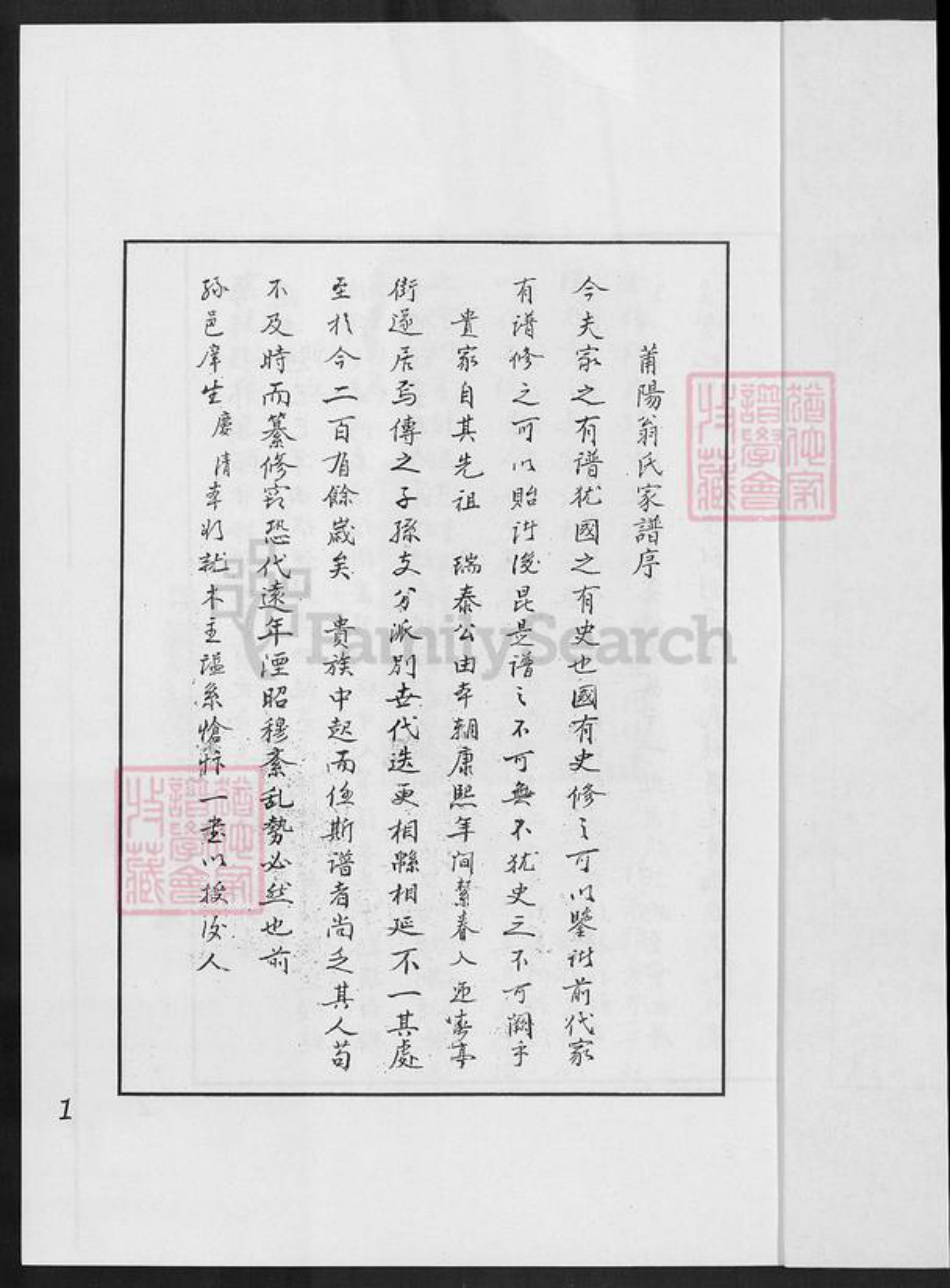 莆陽翁氏家譜序
今夫家之有譜犹國之有史也國有史修之可以鑒諸前代家
有譜修之可以貽諸後昆是譜之不可無不犹史之不可闕乎
貴家自其先祖 瑞泰公由本朝康熙年间絜眷入延
街遂居焉傳之子孫支分派別世代迭更相緜相延不一其處
至於今二百有餘歲矣 貴族中起而任斯譜者尚乏其人苟
不及時而纂修窃恐代遠年湮昭穆紊乱勢必然也前
孫邑庠生慶清率 就木主 系 一 以授後人
猶他家譜學會收藏
猶他家譜學會收藏
FamilySearch
1